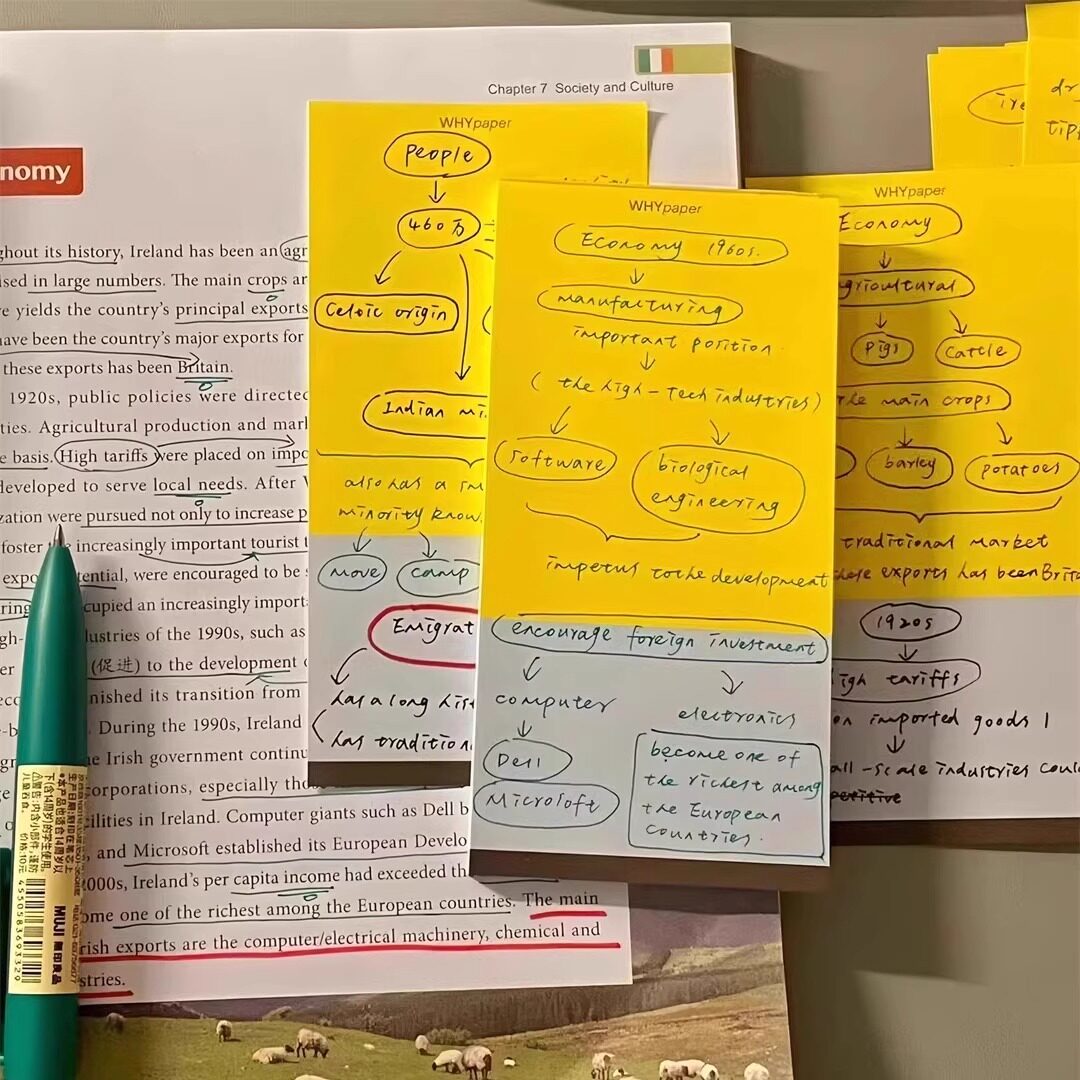 Chapter 7 Society and Culture
nomy
ghout its history, Ireland has been an agr
ised in large numbers. The main crops ar
e yields the country's principal exports
have been the country's major exports for
these exports has been Britain.
1920s, public policies were directed
ties. Agricultural production and mark
e basis. High tariffs were placed on impo
developed to serve local needs. After
zation were pursued not only to increase p
foster increasingly important tourist
expo tential, were encouraged to be
ring cupied an increasingly import
gh- lustries of the 1990s, such as
er (促进) to the development
ec nished its transition from
-b . During the 1990s, Ireland
gr he Irish government continu
ge orporations, especially tho
o cilities in Ireland. Computer giants such as Dell
, and Microsoft established its European Develo
2000s, Ireland's per capita income had exceeded th
ome one of the richest among the European countries. The main
rish exports are the computer/electrical machinery, chemical and
stries.
WHYpaper
people
460万
Celtic origin
Indian mi
also has a
minority know
move
camp
Emigrat
has a long hist
has tradition
WHYpaper
Economy 1960s.
manufacturing
important position.
( the high-tech industries)
software
biological
engineering
impetus to the development
encourage foreign investment
computer
electronics
Dell
Microsoft
become one of
the richest among
the European
countries.
WHYpaper
Economy
gricultural
Pigs
cattle
main crops
barley
potatoes
traditional market
hese exports has been Brita
1920s
igh tariffs
on imported goods
all-scale industries could
ire
dr
tip
MUJI 無印良品
4550583693329
价格:10元